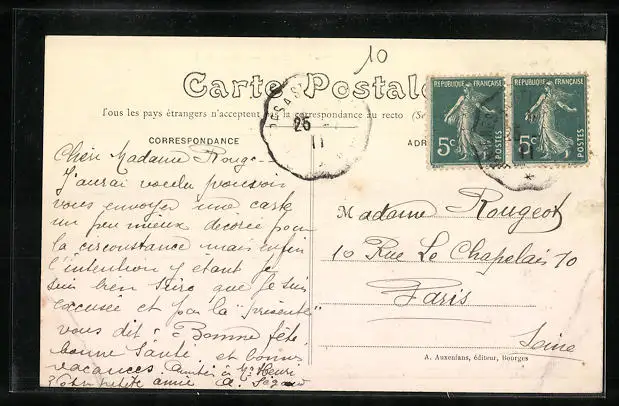 10
Carte Postale
Tous les pays étrangers n'acceptent pas la correspondance au recto (Se
CORRESPONDANCE
ADR
RÉPUBLIQUE FRANÇAISE
5c
POSTES
RÉPUBLIQUE FRANÇAISE
5c
POSTES
25
11
Chère Madame Rouge
J'aurai voulu pouvoir
vous envoyer une carte
un peu mieux décorée pour
la circonstance mais enfin
l'intention y étant je
suis bien sûre que je suis
excusée et par la "présente"
vous dit : Bonne fête,
bonne Santé, et bonnes
vacances Amitiés à Mr Henri
Votre petite amie A.
Madame Rougeot
10 Rue Le Chapelais 10
Paris
Seine
A. Auxenfans, éditeur, Bourges